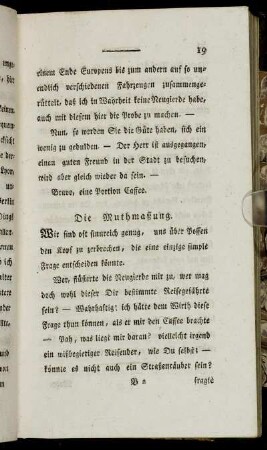 19
einem Ende Europens bis zum andern auf so un-
endlich verschiedenen Fahrzeugen zusammenge-
rüttelt, daß ich in Wahrheit keine Neugierde habe,
auch mit diesem hier die Probe zu machen. —
Nun, so werden Sie die Güte haben, sich ein
wenig zu gedulden. — Der Herr ist ausgegangen,
einen guten Freund in der Stadt zu besuchen,
wird aber gleich wieder da sein. —
Bravo, eine Portion Caffee.
Die Muthmassung.
Wir sind oft sinnreich genug, uns über Possen
den Kopf zu zerbrechen, die eine einzige simple
Frage entscheiden könnte.
Wer, flüsterte die Neugierde mir zu, wer mag
doch wohl dieser Dir bestimmte Reisegefährte
sein? — Wahrhaftig! ich hätte dem Wirth diese
Frage thun können, als er mir den Caffee brachte
— Pah, was liegt mir daran? vielleicht irgend
ein wißbegieriger Reisender, wie Du selbst —
könnte es nicht auch ein Straßenräuber sein?
B 2
fragte